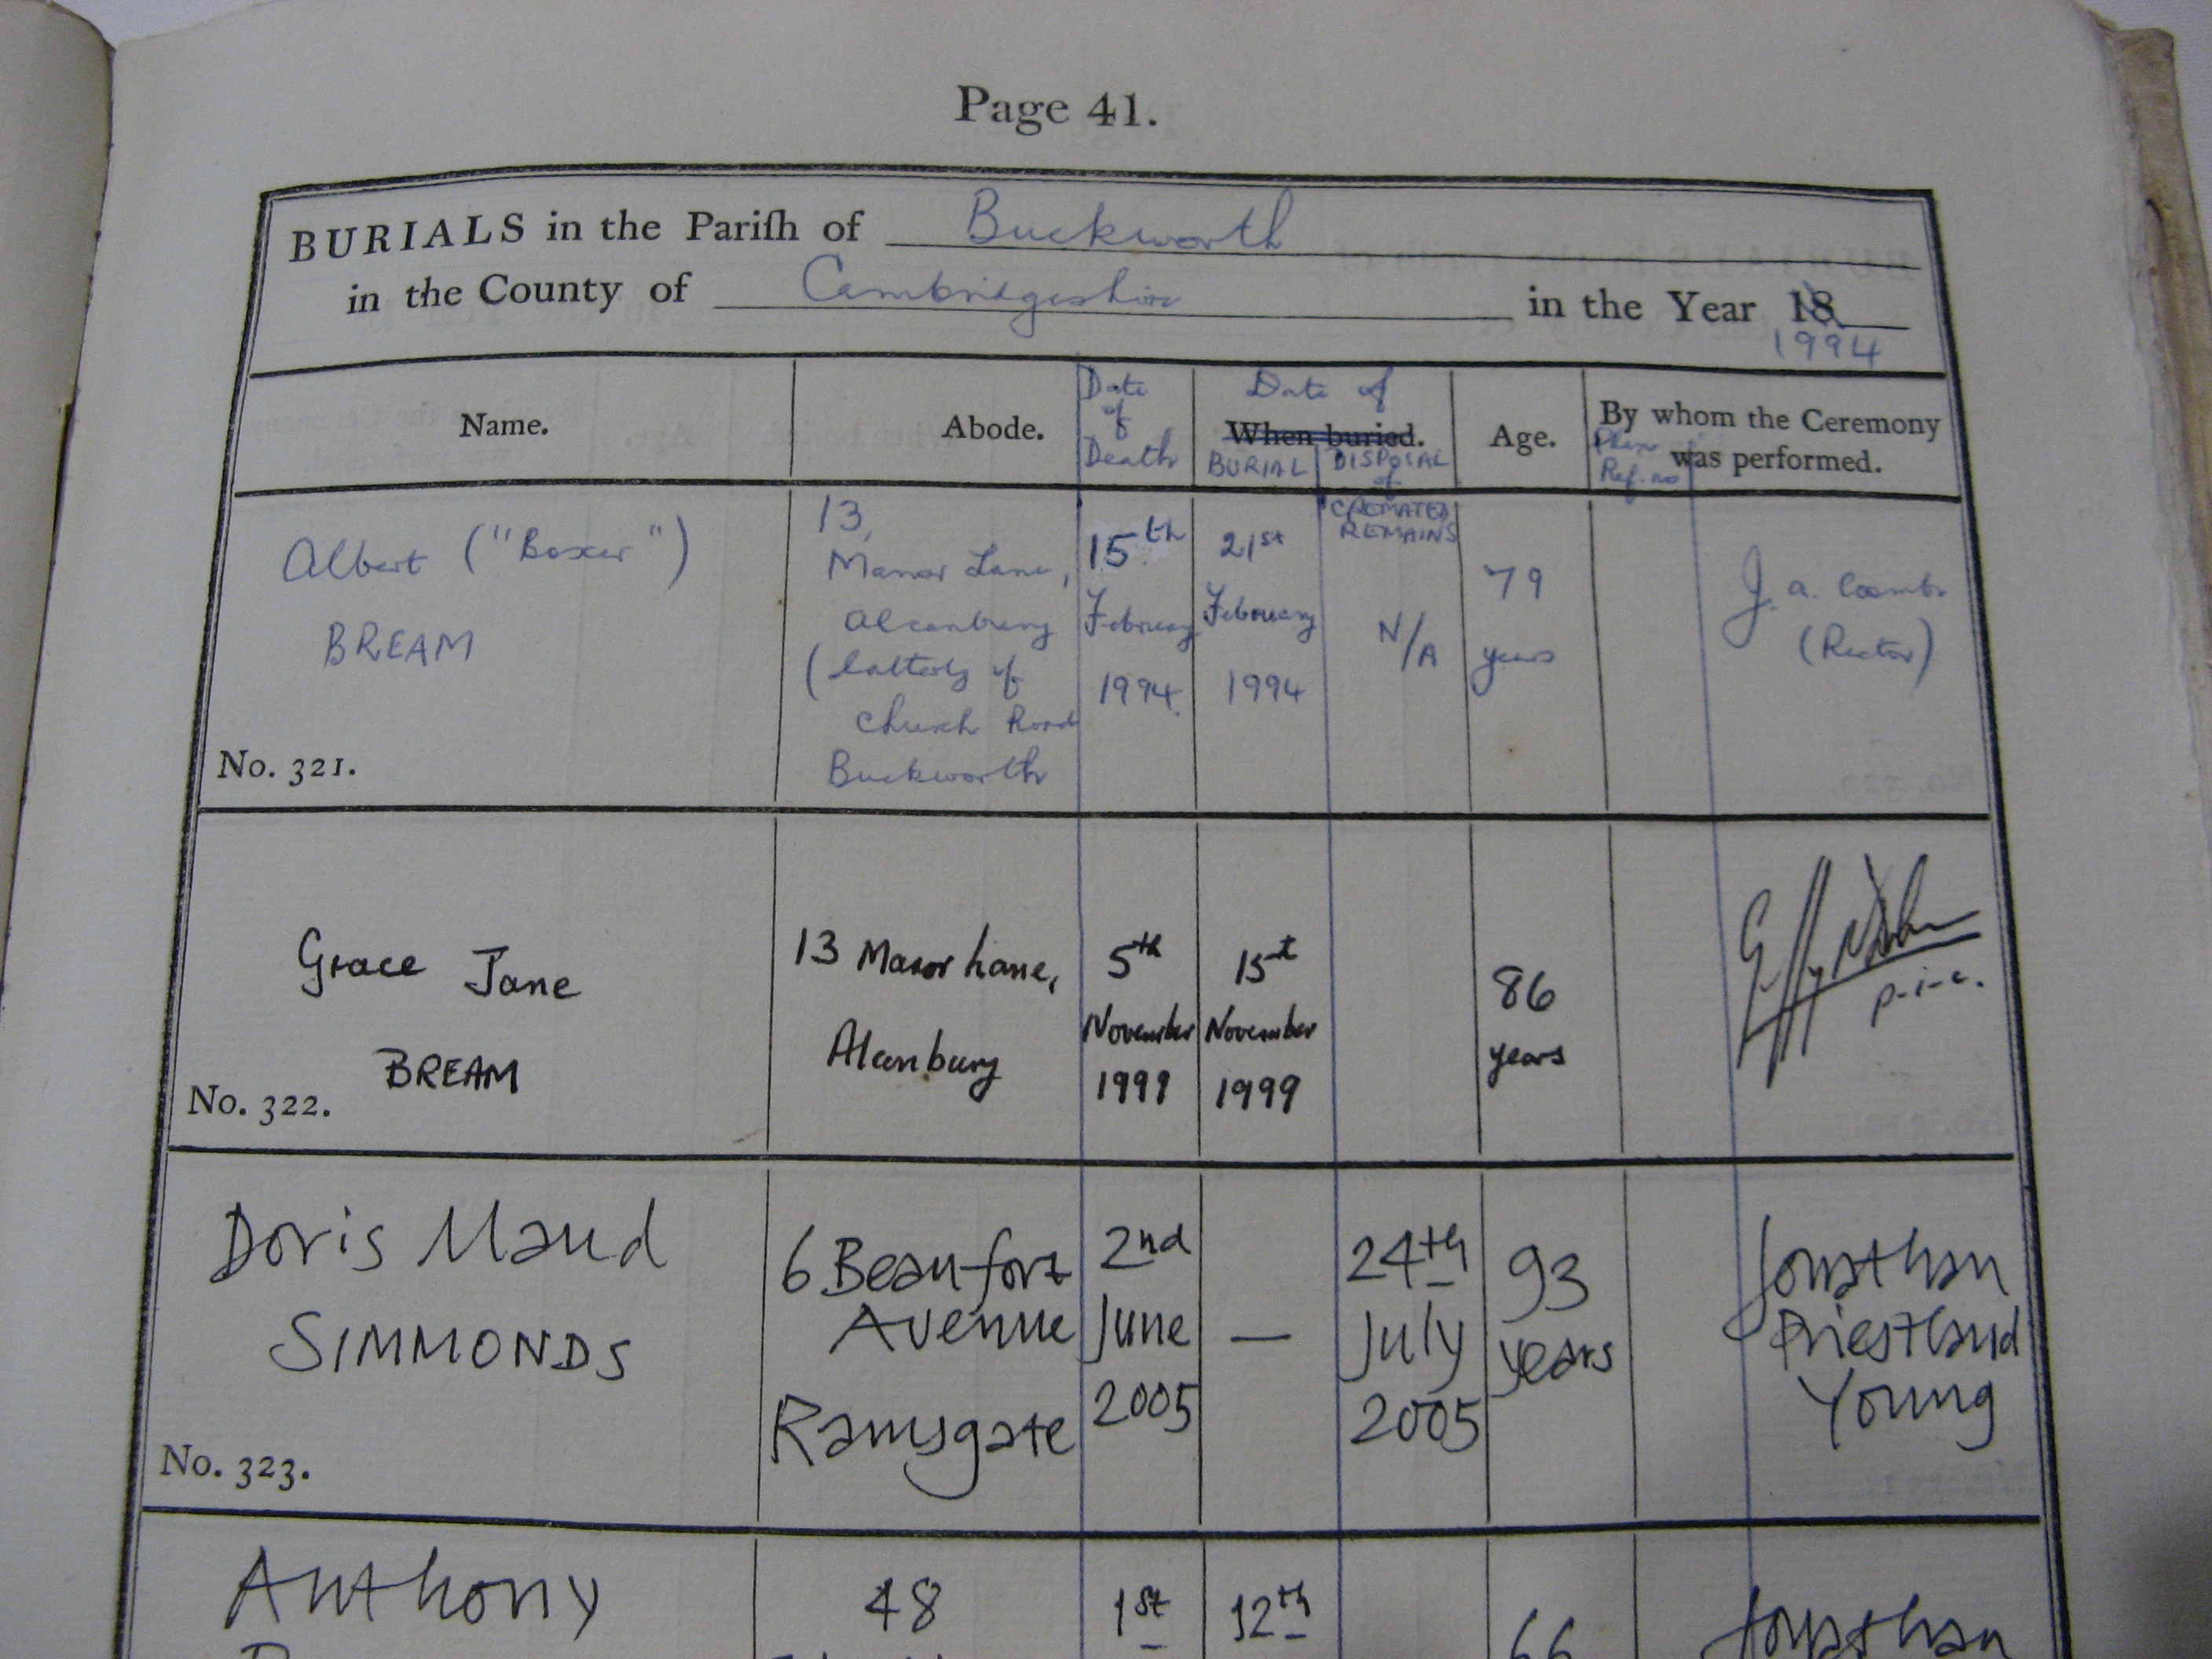 Page 41.
BURIALS in the Pariſh of Buckworth
in the County of Cambridgeshire in the Year 18
1994
Name.
Abode.
Date
of
Death
Date of
When buried.
BURIAL
DISPOSAL
of
CREMATED
REMAINS
Age.
By whom the Ceremony
was performed.
Ref. no
Albert ("Boxer")
BREAM
No. 321.
13,
Manor Lane,
Alconbury
(latterly of
Church Road
Buckworth
15th
February
1994.
21st
February
1994
N/A
79
years
J. A. Coombs
(Rector)
Grace Jane
BREAM
No. 322.
13 Manor Lane,
Alconbury
5th
November
1999
15th
November
1999
86
years
p-i-c.
Doris Maud
SIMMONDS
No. 323.
6 Beaufort
Avenue
Ramsgate
2nd
June
2005
—
24th
July
2005
93
years
Jonathan
Priestland
Young
Anthony
48
1st
12th
66
Jonathan